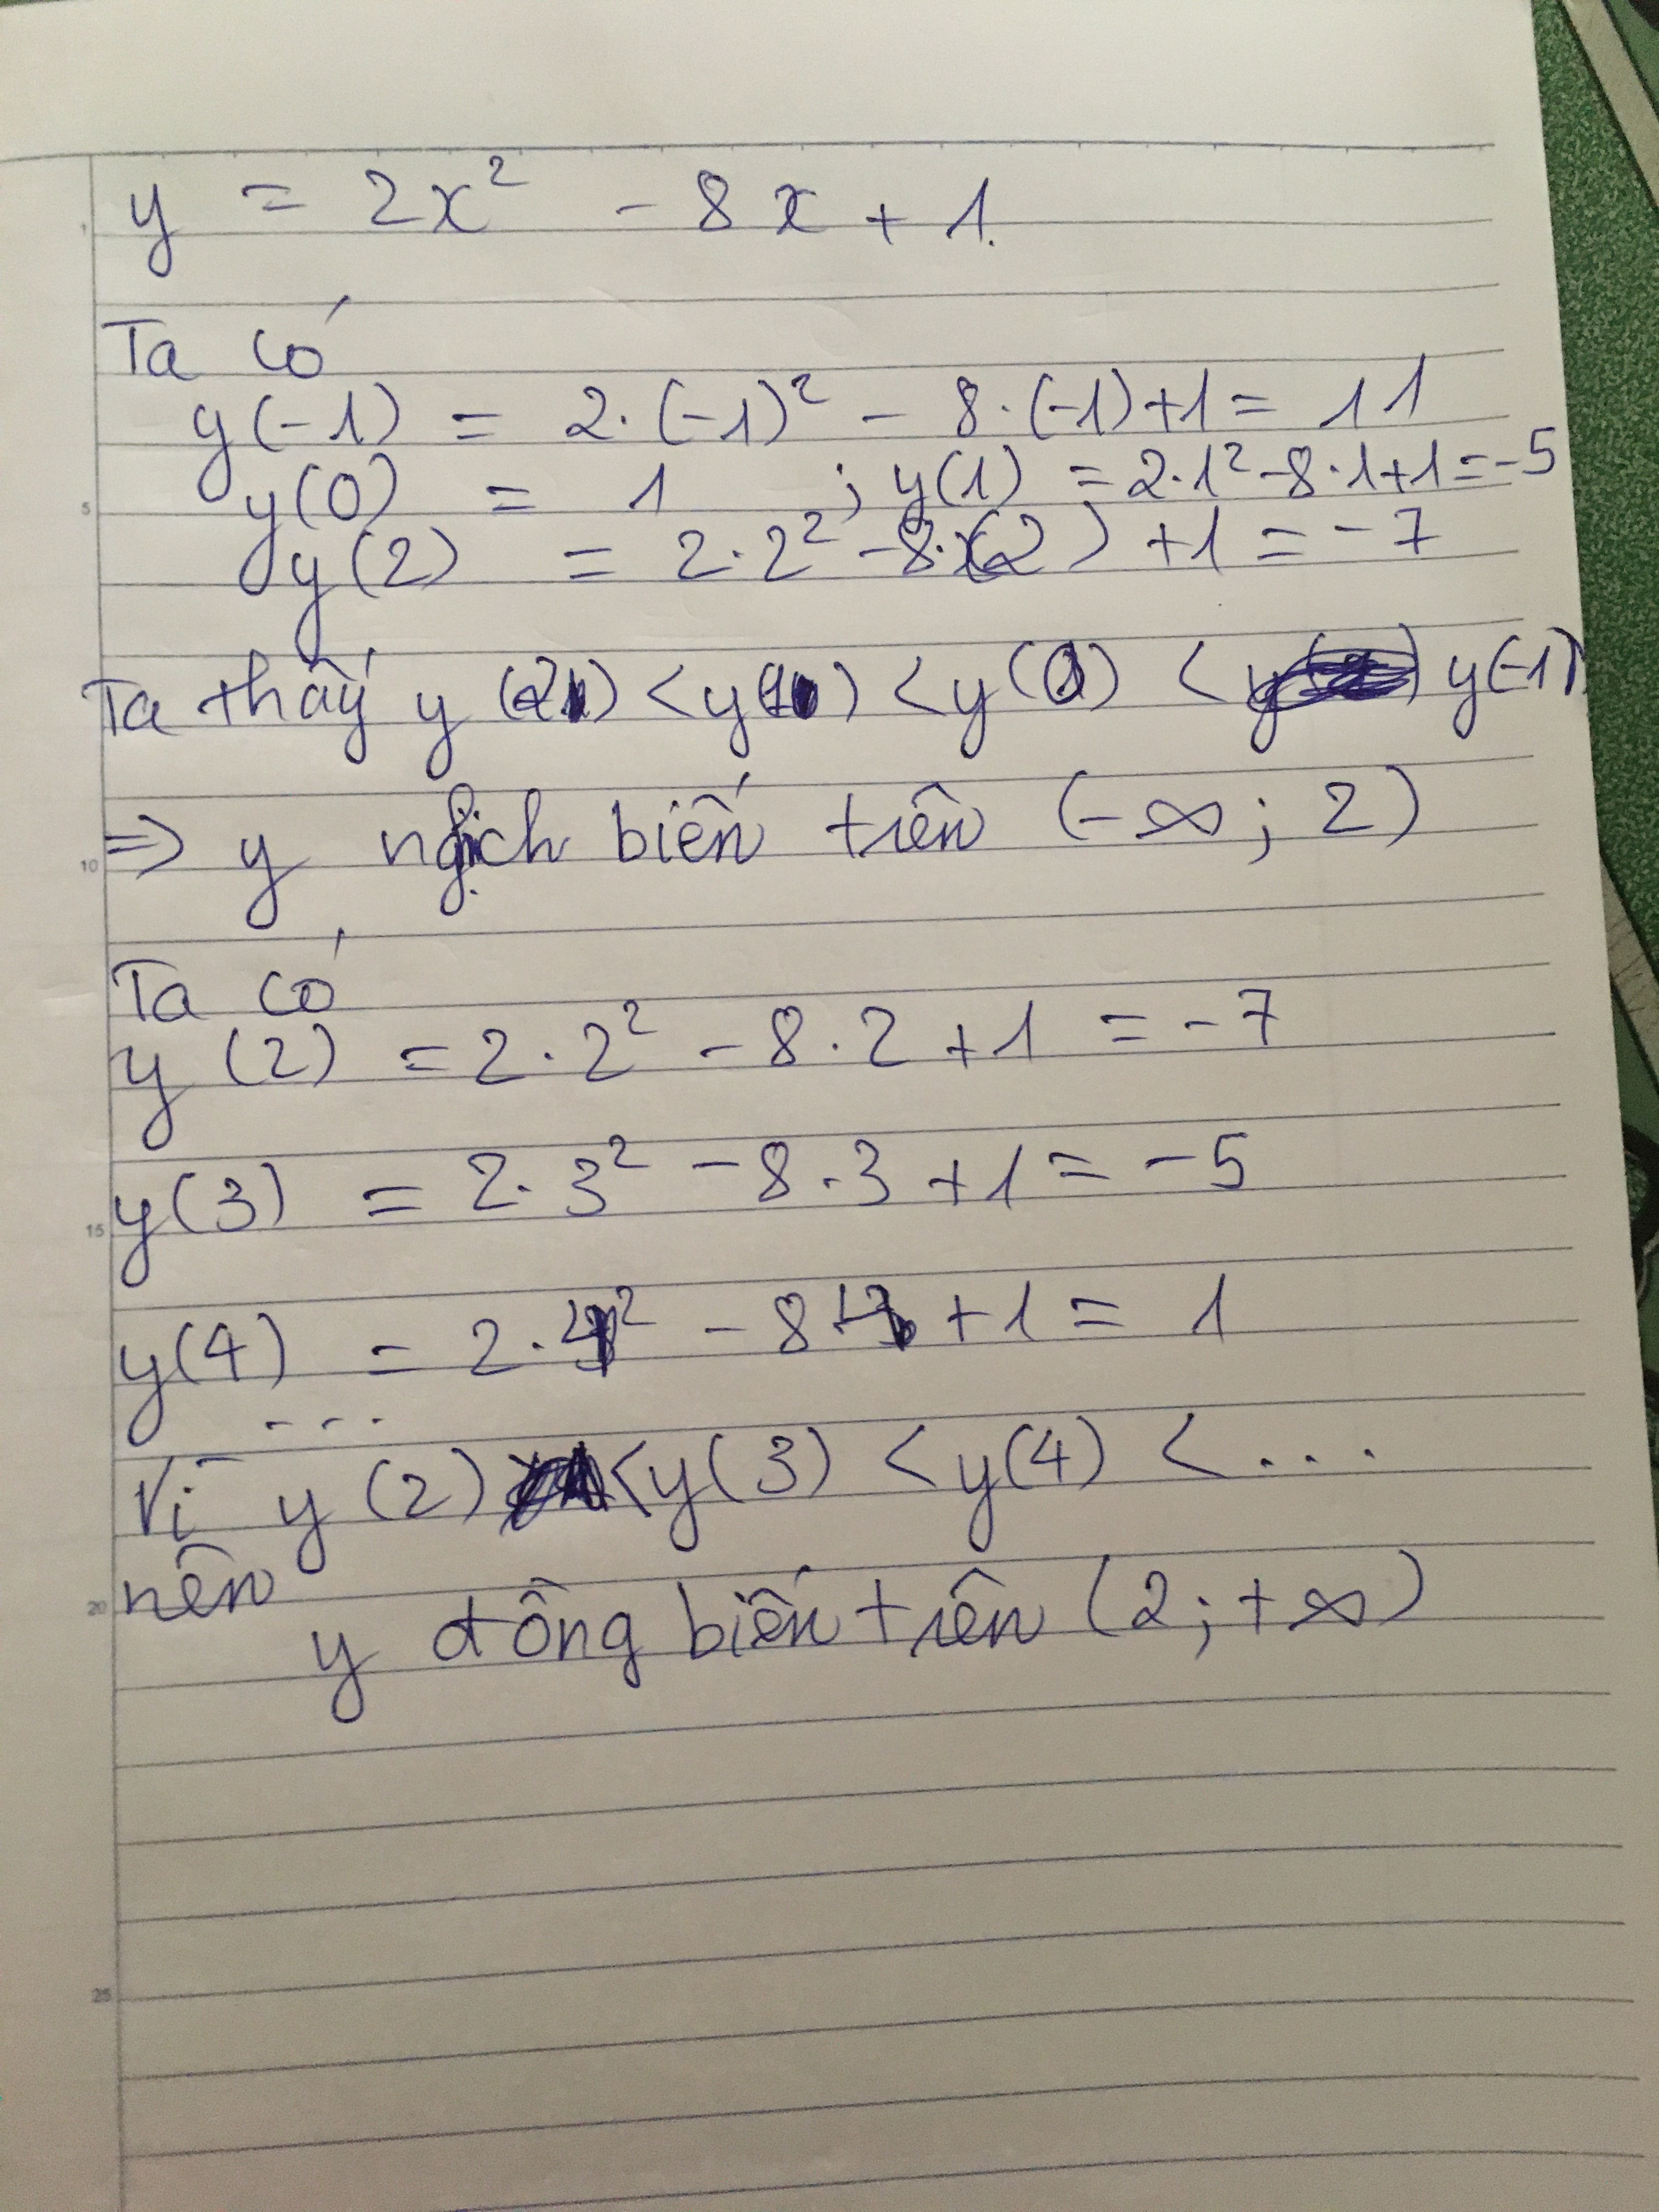 y = 2x² - 8x + 1.
Ta có
y(-1) = 2.(-1)² - 8.(-1)+1 = 11
y(0) = 1 ; y(1) = 2.1²-8.1+1=-5
y(2) = 2.2² -8.(2) +1 = -7
Ta thấy y (2) < y(1) < y(0) < y(-1)
=> y nghịch biến trên (-∞; 2)
Ta có
y (2) = 2.2² - 8.2 + 1 = -7
y(3) = 2.3² - 8.3 + 1 = -5
y(4) = 2.4² - 8 4 + 1 = 1
...
Vì y (2) < y(3) < y(4) < ...
nên
y đồng biến trên (2; +∞)
1
5
10
15
20
25